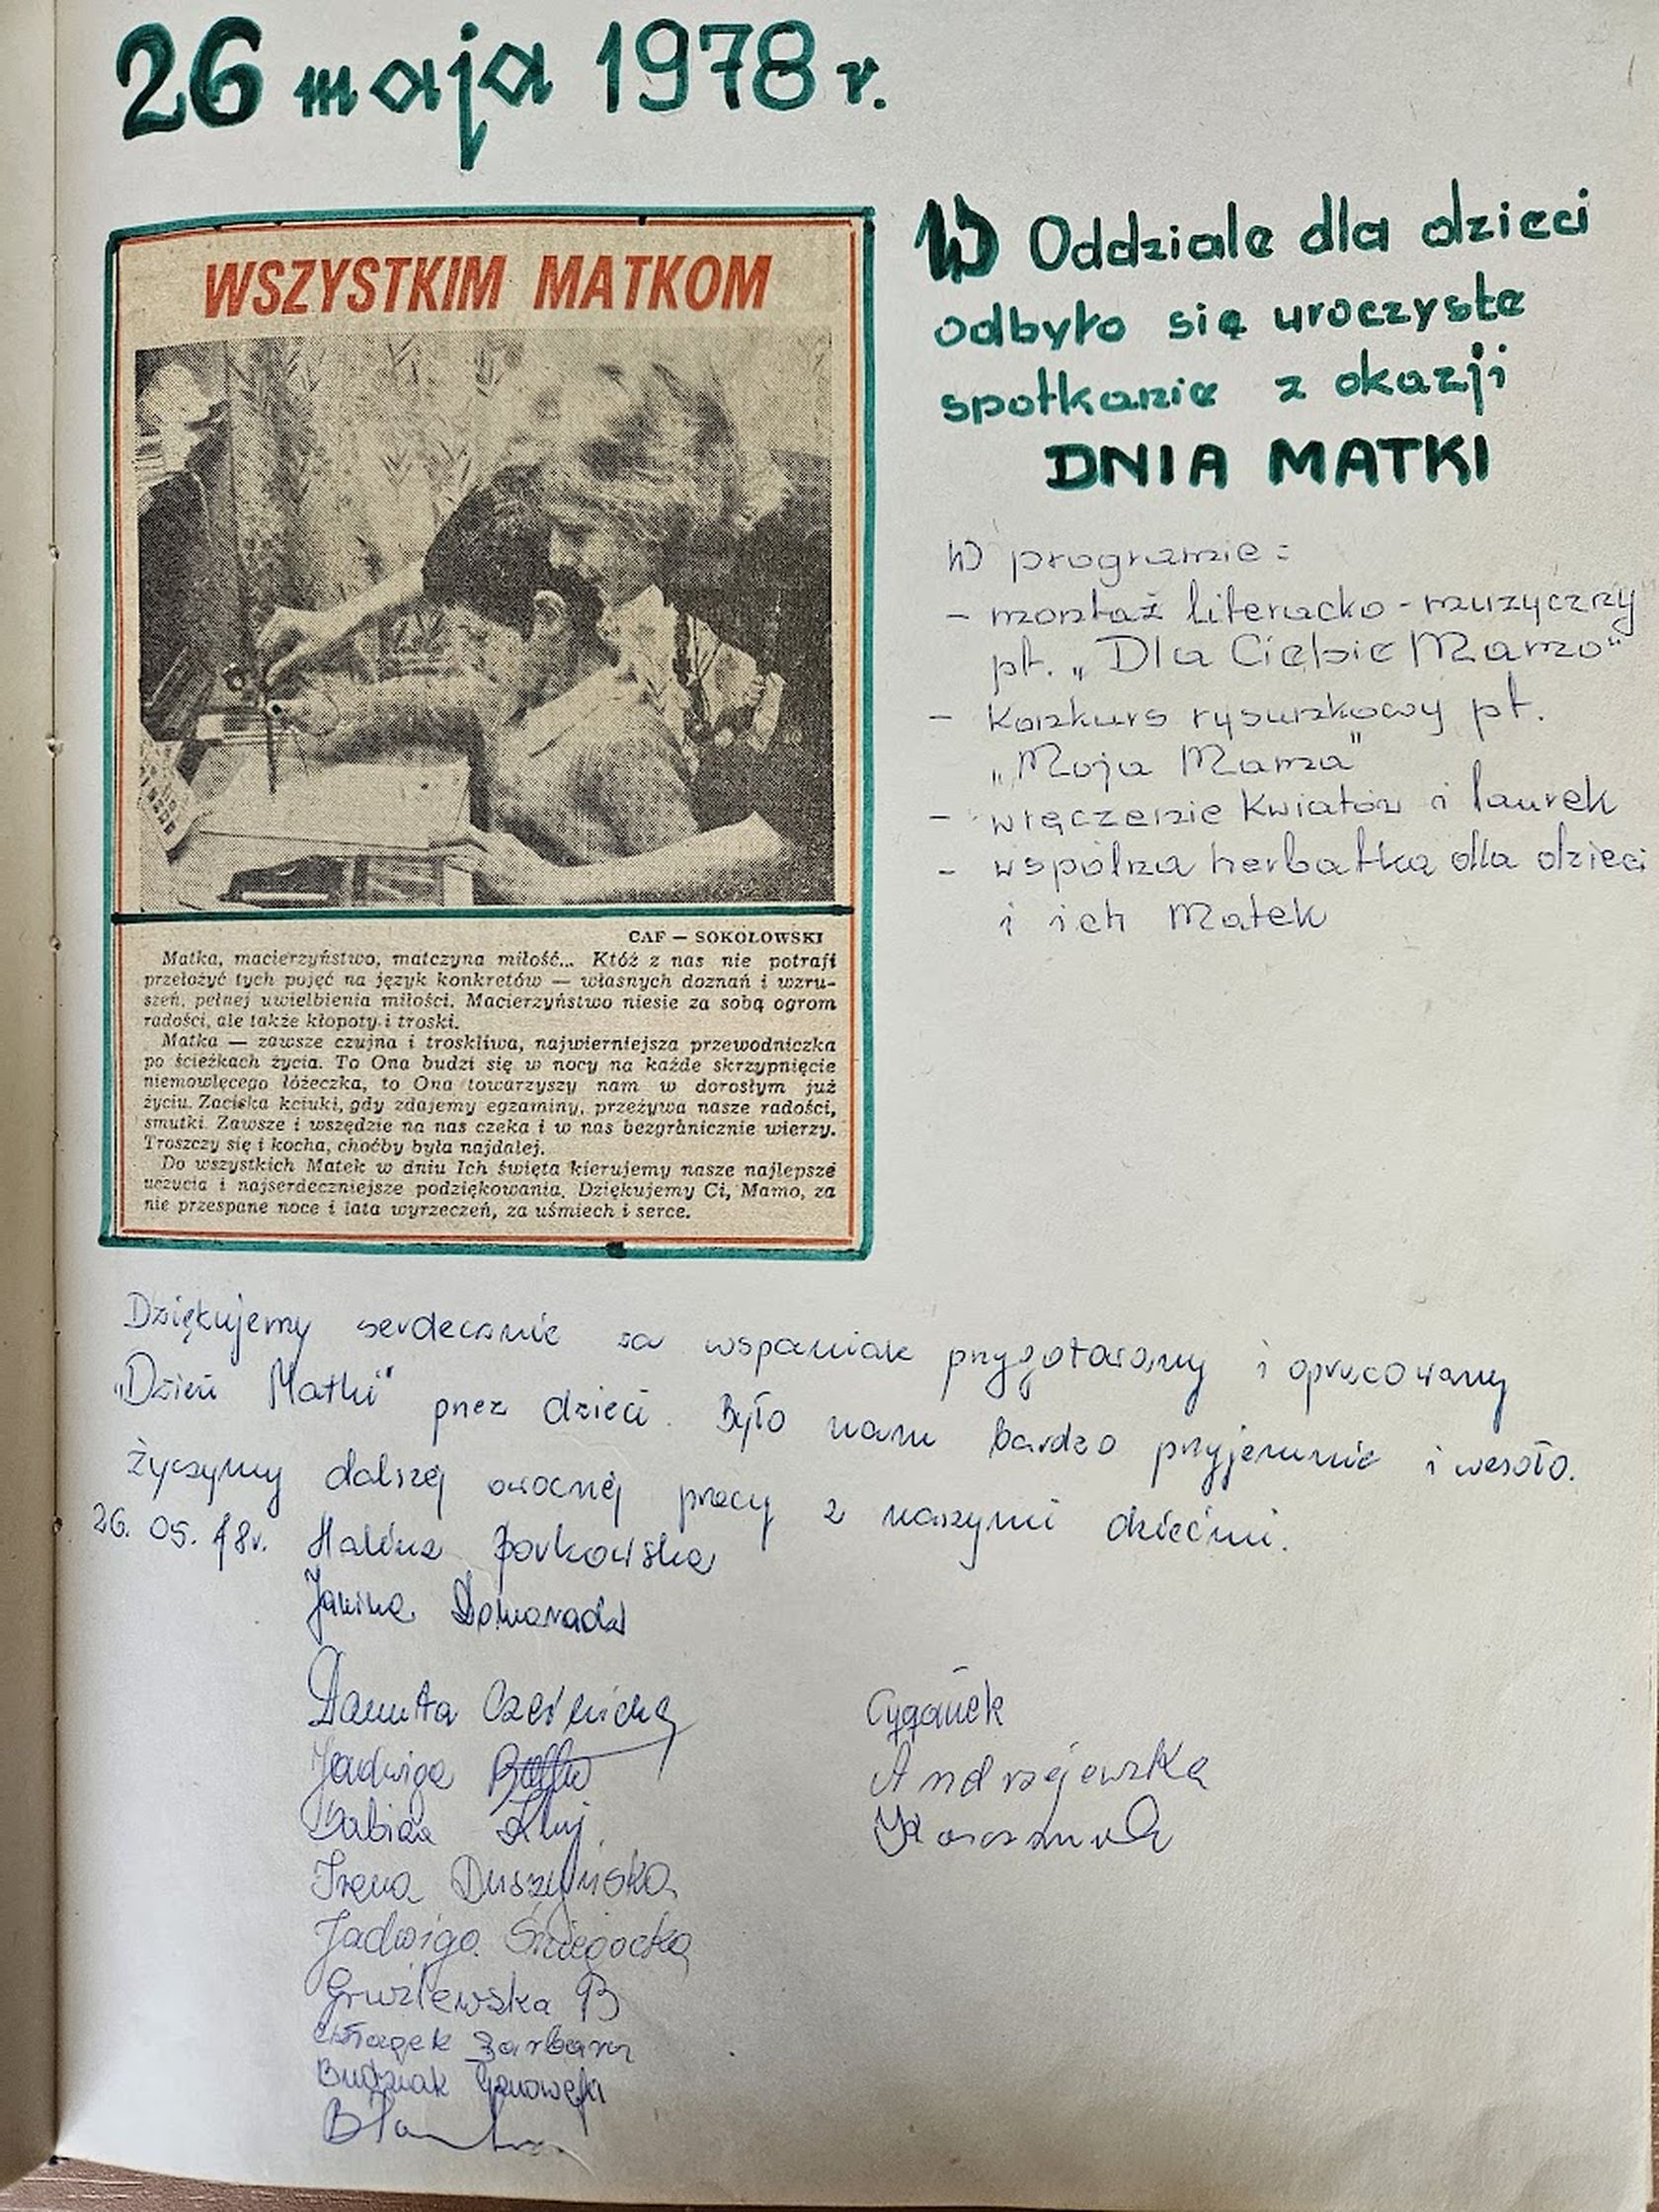 26 maja 1978 r.
WSZYSTKIM MATKOM
CAF — SOKOŁOWSKI
Matka, macierzyństwo, matczyna miłość... Któż z nas nie potrafi
przełożyć tych pojęć na język konkretów — własnych doznań i wzru-
szeń, pełnej uwielbienia miłości. Macierzyństwo niesie za sobą ogrom
radości, ale także kłopoty i troski.
Matka — zawsze czujna i troskliwa, najwierniejsza przewodniczka
po ścieżkach życia. To Ona budzi się w nocy na każde skrzypnięcie
niemowlęcego łóżeczka, to Ona towarzyszy nam w dorosłym już
życiu. Zaciska kciuki, gdy zdajemy egzaminy, przeżywa nasze radości,
smutki. Zawsze i wszędzie na nas czeka i w nas bezgranicznie wierzy.
Troszczy się i kocha, choćby była najdalej.
Do wszystkich Matek w dniu Ich święta kierujemy nasze najlepsze
uczucia i najserdeczniejsze podziękowania. Dziękujemy Ci, Mamo, za
nie przespane noce i lata wyrzeczeń, za uśmiech i serce.
W Oddziale dla dzieci
odbyło się uroczyste
spotkanie z okazji
DNIA MATKI
W programie:
- montaż literacko-muzyczny
pt. „Dla Ciebie Mamo"
- konkurs rysunkowy pt.
„Moja Mama"
- wręczenie kwiatów i laurek
- wspólna herbatka dla dzieci
i ich Matek
Dziękujemy serdecznie za wspaniale przygotowany i opracowany
„Dzień Matki" przez dzieci. Było nam bardzo przyjemnie i wesoło.
życzymy dalszej owocnej pracy z naszymi dziećmi.
26. 05. 78r. Halina
Janina
Danuta
Jadwiga
Irena Duszyńska
Jadwiga Śniegocka
Gruźlewska B
Budziak Genowefa
Cyganek
Andrzejewska